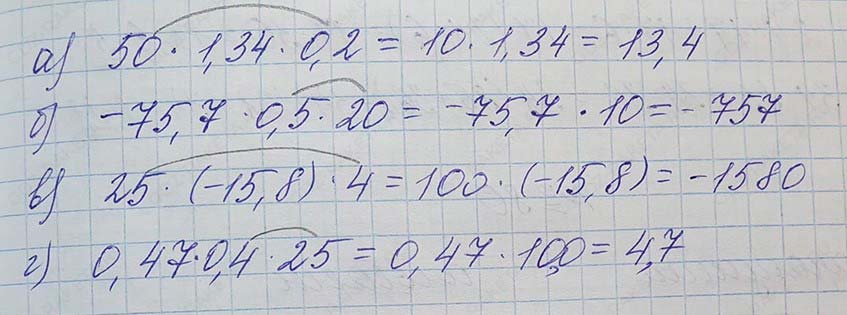 а) 50 · 1,34 · 0,2 = 10 · 1,34 = 13,4
б) -75,7 · 0,5 · 20 = -75,7 · 10 = -757
в) 25 · (-15,8) · 4 = 100 · (-15,8) = -1580
г) 0,47 · 0,4 · 25 = 0,47 · 10,0 = 4,7